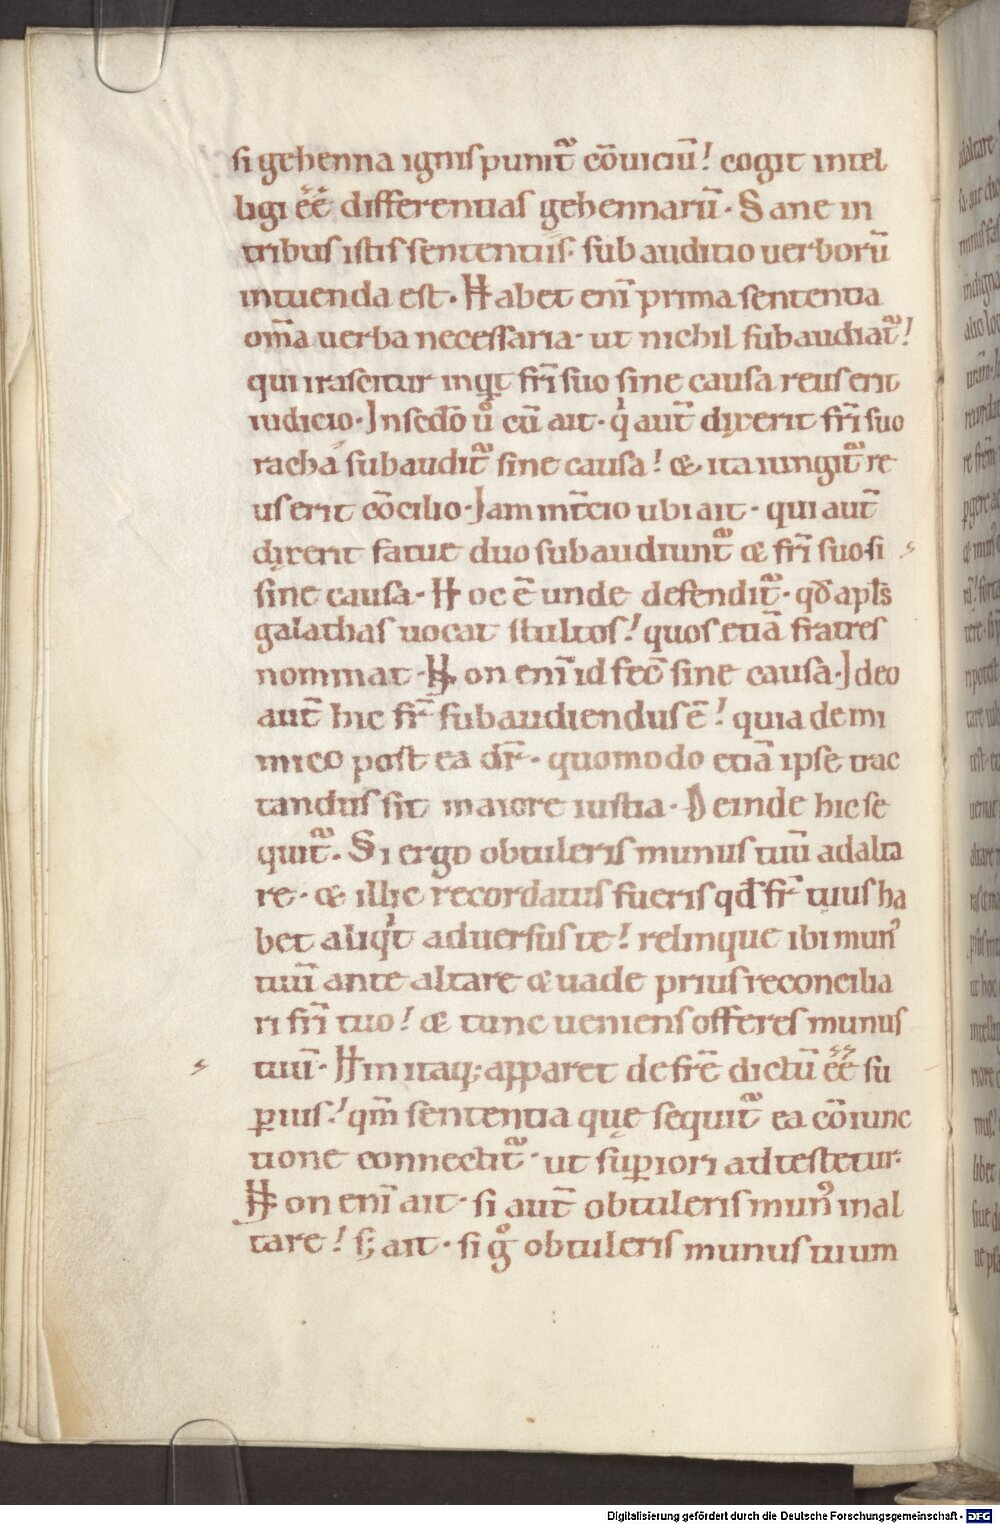 si gehenna ignis punit᷑ cōuiciū! cogit intel
ligi ēē differentias gehennarū. Sane in
tribus istis sententiis. sub auditio uerborū
intuenda est. Habet enī prima sententia
om̄a uerba necessaria. ut nichil subaudiat᷑!
qui irascitur inqͥt fr̄i suo sine causa reus erit
iudicio. In scd̄o uͦ cū ait. qͥ aut̄ dixerit fr̄i suo
racha subaudit᷑ sine causa! & ita iungit᷑ re
us erit cōcilio. Iam in t̄cio ubi ait. qui aut̄
dixerit fatue duo subaudiunt᷑ & fr̄i suo. si
sine causa. Hoc ē unde defendit᷑. qđ apl̄s
galathas uocat stultos! quos etiā fratres
nominat. Non enī id fec̄ sine causa. Ideo
aut̄ hic fr̄ subaudiendus ē! quia de ini
mico post ea dr̄. quomodo etiā ipse trac
tandus sit maiore iustia. Deinde hic se
quit᷑. Si ergo obtuleris munus tuū ad alta
re. & illic recordatus fueris qđ fr̄ tuus ha
bet aliqͥt aduersus te! relinque ibi munꝰ
tuū ante altare & uade prius reconcilia
ri fr̄i tuo! & tunc ueniens offeres munus
tuū. Hin itaq; apparet de fr̄e dictū ēē su
ꝑius! qm̄ sententia quę sequit᷑ ea cōiunc
tione connectit᷑. ut suꝑiori adtestetur.
Non enī ait. si aut̄ obtuleris munꝰ in al
tare! s; ait. si gͦ obtuleris munus tuum
Digitalisierung gefördert durch die Deutsche Forschungsgemeinschaft - DFG